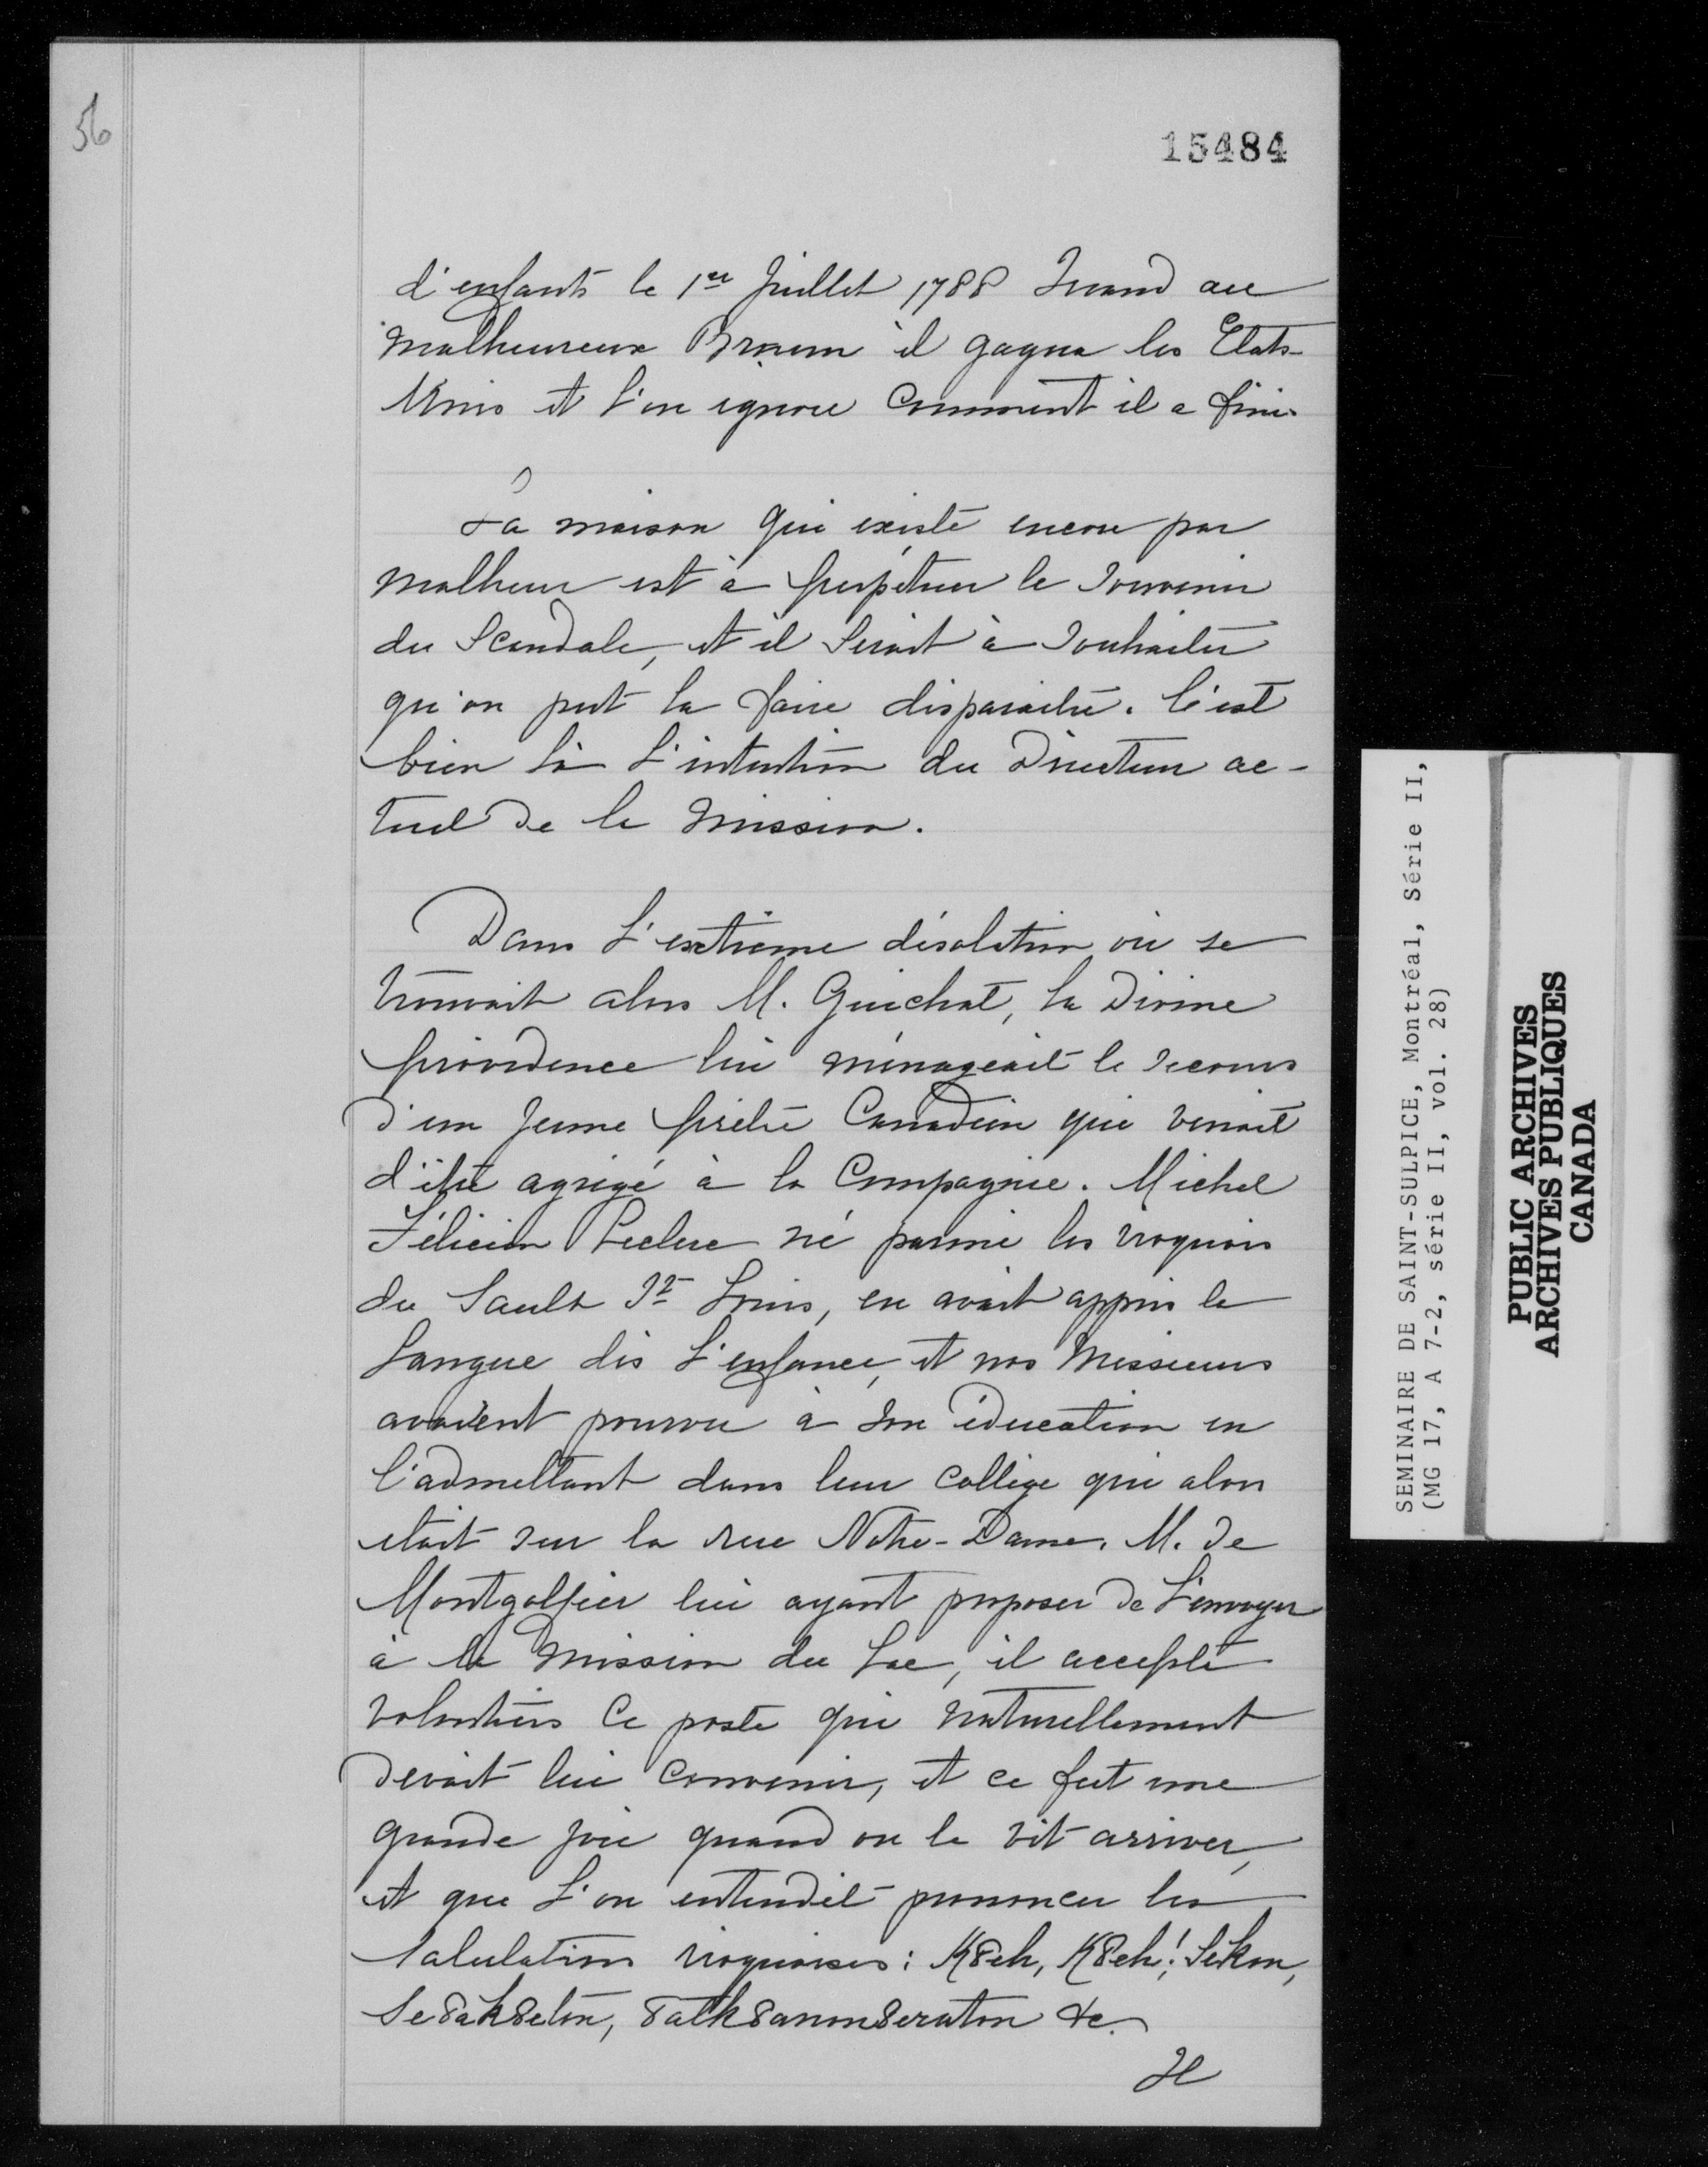 56
15484
d'enfants le 1er Juillet 1788 Quand au
malheureux Brunn il gagna les Etats-
Unis et l'on ignore comment il a fini.
La maison qui existe encore par
malheur est à perpétuer le souvenir
du Scandale, et il serait à souhaiter
qu'on put la faire disparaitre. C'est
bien là l'intention du Directeur ac-
tuel de la mission.
Dans l'extrème désolation où se
trouvait alors M. Guichat, la Divine
providence lui ménageait le secours
d'un jeune prêtre Canadien qui venait
d'être agrégé à la Compagnie. Michel
Félicien Leclerc né parmi les iroquois
du Sault St Louis, en avait appris la
langue dès l'enfance, et nos Messieurs
avaient pourvu à son éducation en
l'admettant dans leur collège qui alors
était sur la rue Notre-Dame. M. de
Montgolfier lui ayant proposer de l'envoyer
à la Mission du Lac, il accepte
volontiers ce poste qui naturellement
devait lui convenir, et ce fut une
grande joie quand on le vit arriver,
et que l'on entendit prononcer les
salutations iroquoises: K8eh, K8eh! Sekon,
Se8ak8eton, 8atk8anon8eraton &c.
Il
SEMINAIRE DE SAINT-SULPICE, Montréal, Série II,
(MG 17, A 7-2, série II, vol. 28)
PUBLIC ARCHIVES
ARCHIVES PUBLIQUES
CANADA